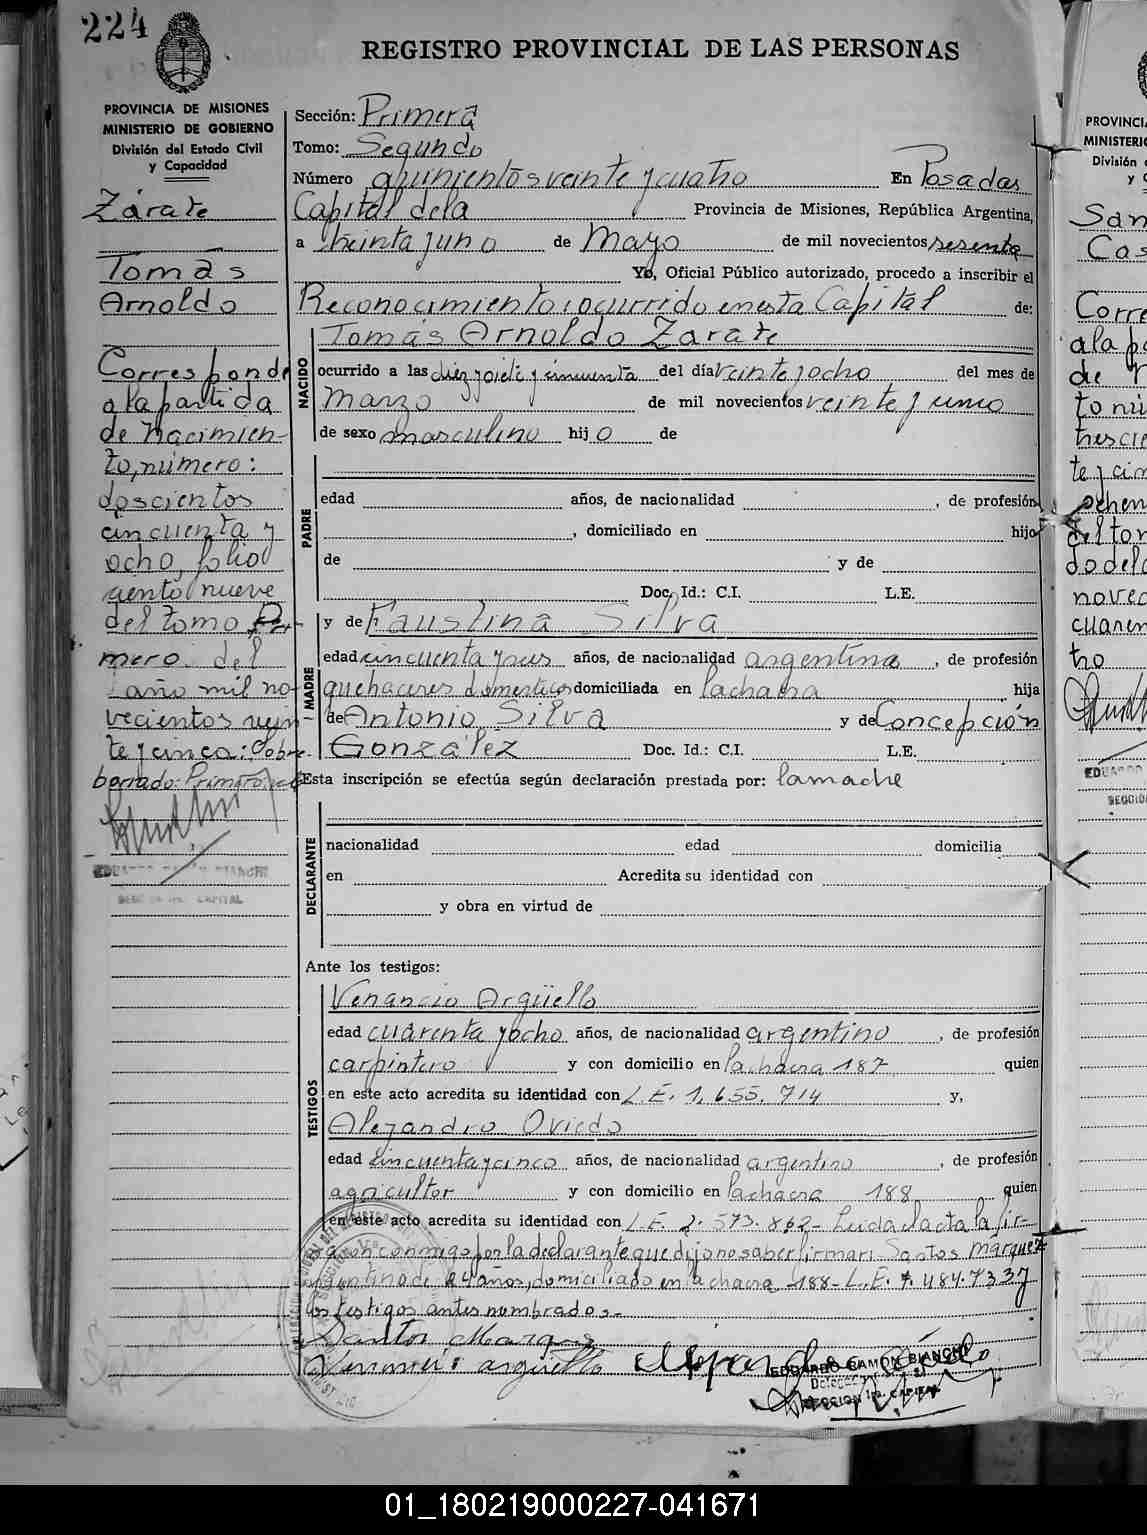 224
REGISTRO PROVINCIAL DE LAS PERSONAS
PROVINCIA DE MISIONES
MINISTERIO DE GOBIERNO
División del Estado Civil
y Capacidad
Zárate
Tomás
Arnoldo
Corresponde
a la partida
de nacimien-
to, número:
doscientos
cincuenta y
ocho, folio
ciento nueve
del tomo Pri-
mero del
año mil no-
vecientos vein
te y cinco: Sobre
borrado: Primero
EDUARDO RAMON BIANCHI
CAPITAL
Sección: Primera
Tomo: Segundo
Número quinientos veinte y cuatro En Posadas
Capital de la Provincia de Misiones, República Argentina,
a treinta y uno de Mayo de mil novecientos sesenta
Yo, Oficial Público autorizado, procedo a inscribir el
Reconocimiento: ocurrido en esta Capital de:
NACIDO
Tomás Arnoldo Zarate
ocurrido a las diez y siete y cincuenta del día veinte y ocho del mes de
Marzo de mil novecientos veinte y uno
de sexo masculino hijo de
PADRE
edad años, de nacionalidad , de profesión
, domiciliado en hijo
de y de
Doc. Id.: C.I. L.E.
MADRE
y de Faustina Silva
edad cincuenta y seis años, de nacionalidad argentina , de profesión
quehaceres domesticos domiciliada en la chacra hija
de Antonio Silva y de Concepción
González Doc. Id.: C.I. L.E.
Esta inscripción se efectúa según declaración prestada por: la madre
DECLARANTE
nacionalidad edad domicilia
en Acredita su identidad con
y obra en virtud de
Ante los testigos:
TESTIGOS
Venancio Argüello
edad cuarenta y ocho años, de nacionalidad argentino , de profesión
carpintero y con domicilio en la chacra 187 quien
en este acto acredita su identidad con L.E. 1.655.714 y,
Alejandro Oviedo
edad cincuenta y cinco años, de nacionalidad argentino , de profesión
agricultor y con domicilio en la chacra 188 quien
en este acto acredita su identidad con L.E. 2.573.862- Leida el acta la fir-
man conmigo por la declarante que dijo no saber firmar: Santos Márquez
argentino de 24 años, domiciliado en la chacra 188- L.E. 7.484.733 y
los testigos antes nombrados.-
Santos Marquez
Venancio arguello Alejandro Oviedo
EDUARDO RAMON BIANCHI
SECCION 1ra. CAPITAL
PROVINCI
MINISTERIO
División
y C
San
Cas
Corre
a la pa
de n
to nú
tres cie
te y cin
ochen
del tom
do del
novec
cuaren
to
EDUARDO
SECCIO
01_180219000227-041671